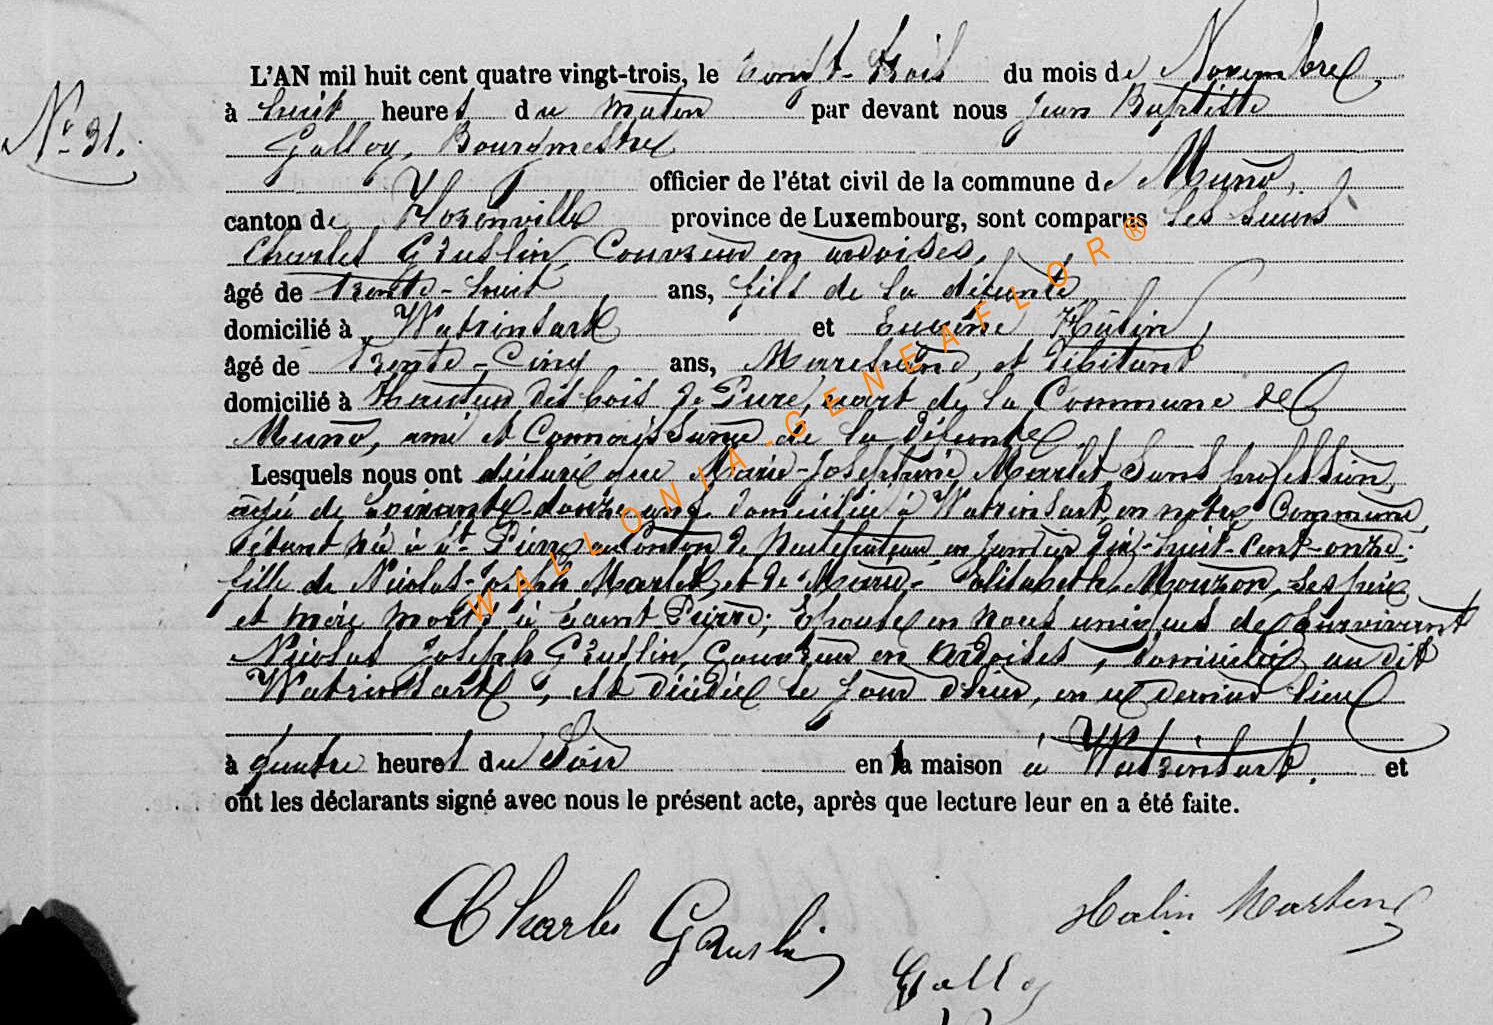 L'AN mil huit cent quatre vingt-trois, le vingt-trois du mois de Novembre,
N° 31.
à huit heures du matin par devant nous Jean Baptiste
Galloy, Bourgmestre
officier de l'état civil de la commune de Muno,
canton de Florenville province de Luxembourg, sont comparus les sieurs
Charles Gruslin, Couvreur en ardoises,
âgé de trente-huit ans, fils de la défunte
domicilié à Watrinsart et Eugène Halin,
âgé de trente-cinq ans, Marchand, et débitant
domicilié à des bois de Pure, de la Commune de
Muno, ami et Connaissance de la défunte
Lesquels nous ont déclaré que Marie-Joséphine Marlet Sans profession,
âgée de Soixante-douze ans domiciliée à Watrinsart, en notre Commune,
étant née à St Pierre en Canton de Neufchâteau en janvier dix-huit-cent-onze.
fille de Nicolas-Joseph Marlet et de Marie-Elisabeth Mouzon, ses père
et mère morts à Saint Pierre; Epouse en de Survivant
Nicolas Joseph Gruslin, Couvreur en Ardoises, domicilié au dit
Watrinsart, est décédée le jour d'hier, en ce dernier lieu
à quatre heures du Soir en la maison à Watrinsart. et
ont les déclarants signé avec nous le présent acte, après que lecture leur en a été faite.
Charles Gruslin
Halin Martin
Galloy
WALLONIA-GENEAFLOR®